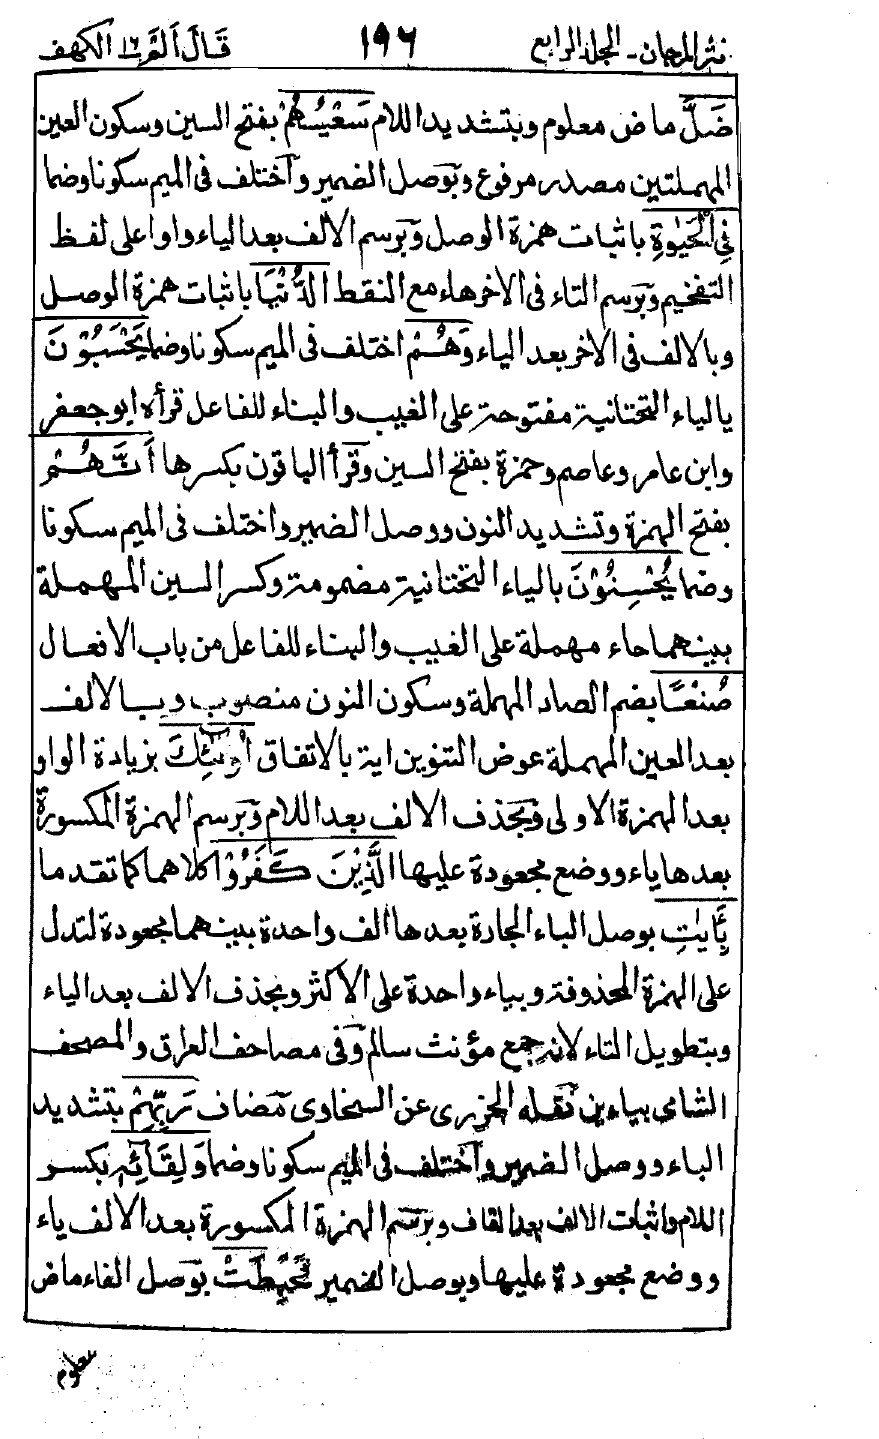 نثر المرجان - المجلد الرابع ١٩٦ قَالَ اَلَمْ ١٦ الكهف
ضَلَّ ماض معلوم وبتشديد اللام سَعْيُهُمْ بفتح السين وسكون العين
المهملتين مصدر مرفوع وبوصل الضمير واختلف فى الميم سكونا وضما
فِى الْحَيٰوةِ باثبات همزة الوصل وبرسم الالف بعد الياء واوا على لفظ
التفخيم وبرسم التاء فى الاخر هاء مع النقط الدُّنْيَا باثبات همزة الوصل
وبالالف فى الاخر بعد الياء وَهُمْ اختلف فى الميم سكونا وضما يَحْسَبُوْنَ
بالياء التحتانية مفتوحة على الغيب والبناء للفاعل قرأه ابوجعفر
وابن عامر وعاصم وحمزة بفتح السين وقرأ الباقون بكسرها أَنَّهُمْ
بفتح الهمزة وتشديد النون ووصل الضمير واختلف فى الميم سكونا
وضما يُحْسِنُوْنَ بالياء التحتانية مضمومة وكسر السين المهملة
بينهما حاء مهملة على الغيب والبناء للفاعل من باب الافعال
صُنْعًا بضم الصاد المهملة وسكون النون منصوب وبالالف
بعد العين المهملة عوض التنوين اية بالاتفاق أُوْلٰٓئِكَ بزيادة الواو
بعد الهمزة الاولى وبحذف الالف بعد اللام وبرسم الهمزة المكسورة
بعدها ياء ووضع مجعودة عليها الَّذِيْنَ كَفَرُوْا كلاهما كما تقدما
بِـَٔايٰتِ بوصل الباء الجارة بعدها الف واحدة بينهما مجعودة لتدل
على الهمزة المحذوفة وبياء واحدة على الاكثر وبحذف الالف بعد الياء
وبتطويل التاء لانه جمع مؤنث سالم وفى مصاحف العراق والمصحف
الشامى بياءين نقله الجزرى عن السخاوى مضاف رَبِّهِمْ بتشديد
الباء ووصل الضمير واختلف فى الميم سكونا وضما وَلِقَآئِهٖ بكسر
اللام واثبات الالف بعد القاف وبرسم الهمزة المكسورة بعد الالف ياء
ووضع مجعودة عليها وبوصل الضمير فَحَبِطَتْ بوصل الفاء ماض
معلوم